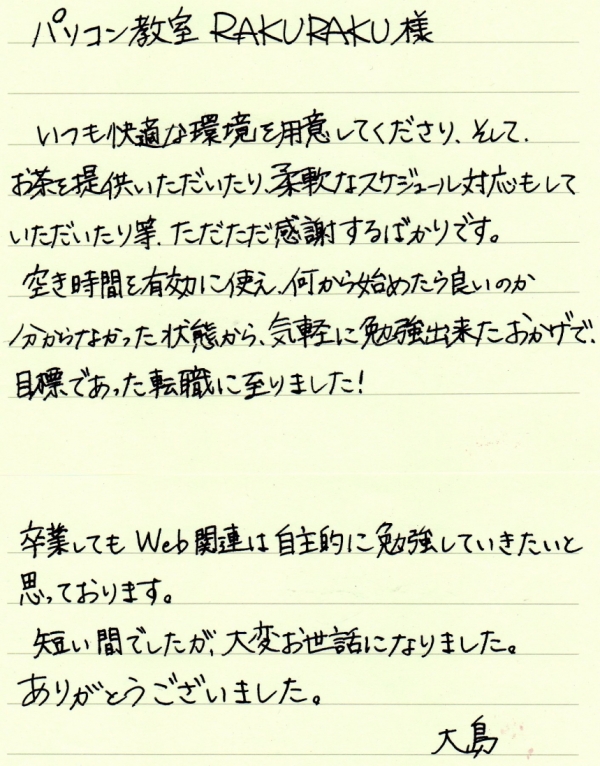 パソコン教室 RAKURAKU 様
いつも快適な環境を用意してくださり、そして、
お茶を提供いただいたり、柔軟なスケジュール対応もして
いただいたり等、ただただ感謝するばかりです。
空き時間を有効に使え、何から始めたら良いのか
分からなかった状態から、気軽に勉強出来たおかげで、
目標であった転職に至りました！
卒業してもWeb関連は自主的に勉強していきたいと
思っております。
短い間でしたが、大変お世話になりました。
ありがとうございました。
大島